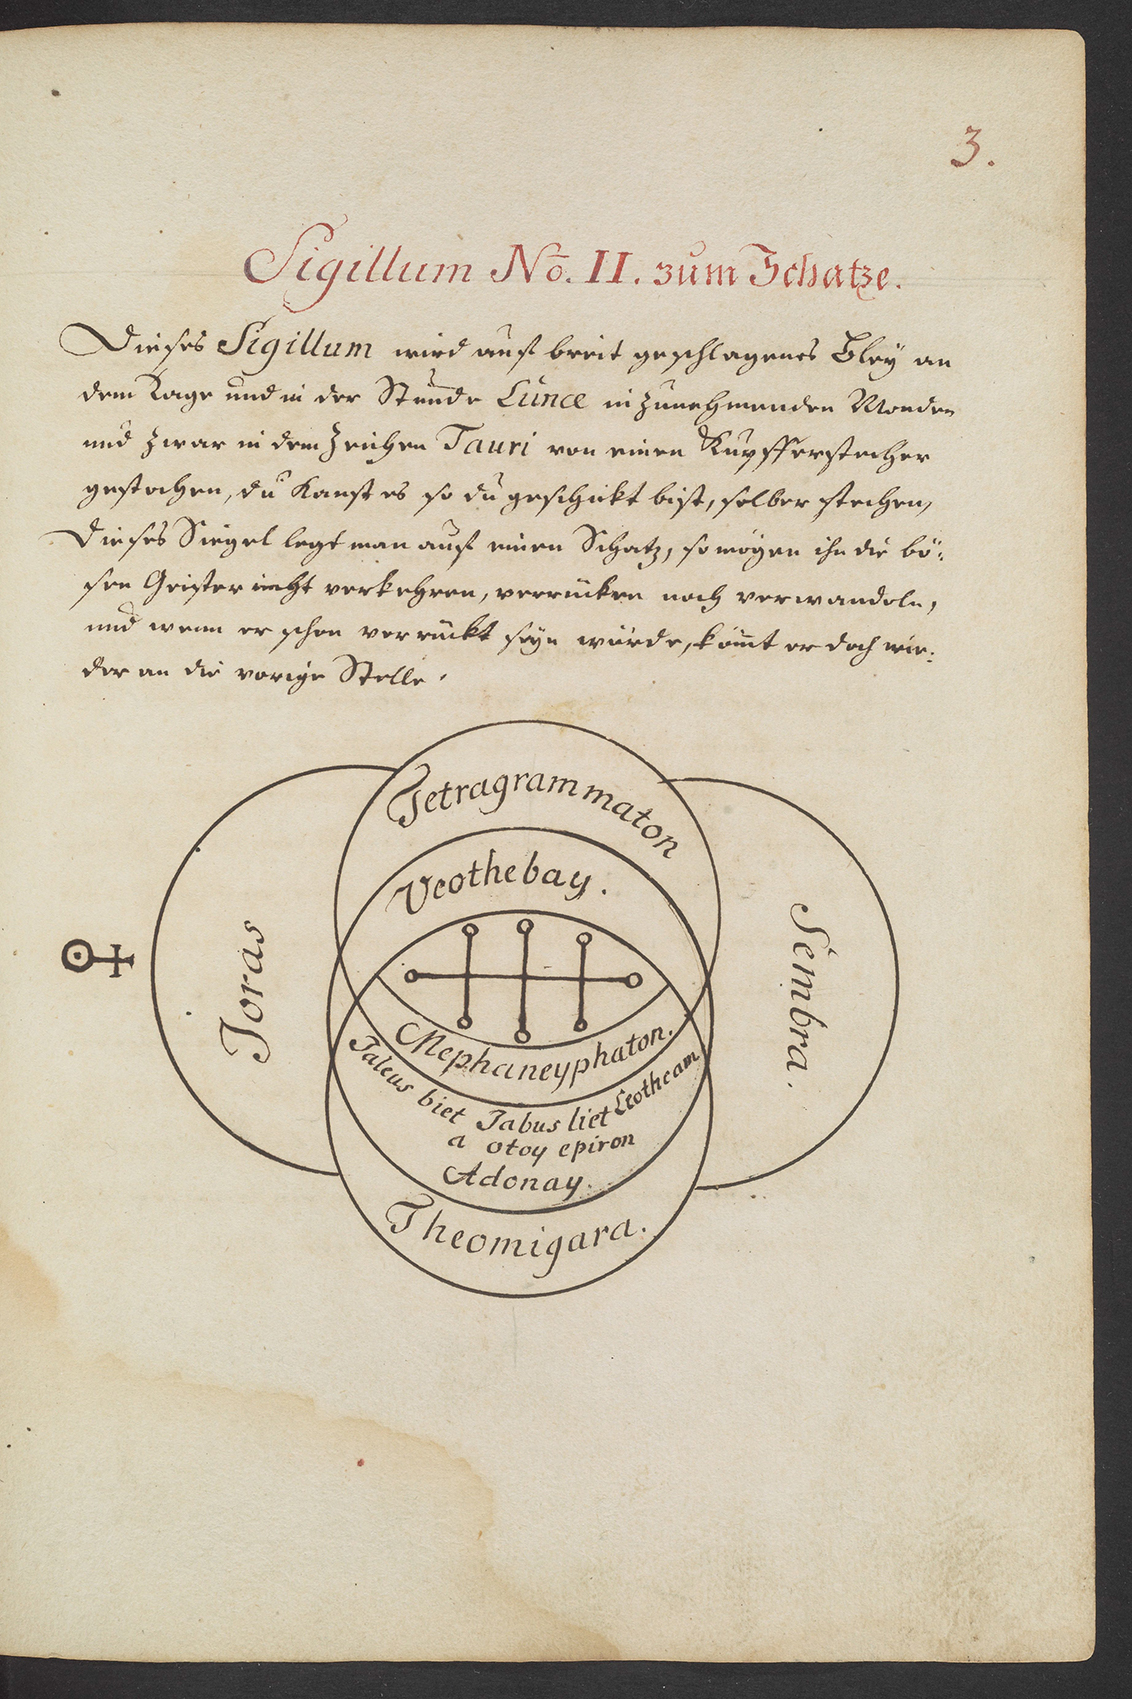 3.
Sigillum No. II. zum Schatze.
Dieses Sigillum wird auf breit geschlagenes Bley an
dem Tage und in der Stunde Lunae in zunehmenden Monden
und zwar in dem Zeichen Tauri von einen Kupfferstecher
gestochen, du kanst es so du geschickt bist, selber stechen,
Dieses Siegel legt man auf einen Schatz, so mögen ihn die bö-
sen Geister nicht verkehren, verrücken noch verwandeln,
und wenn er schon verrückt seyn würde, kom̄t er doch wie-
der an die vorige Stelle.
Tetragrammaton
Veothebay.
Joras
Sembra.
Mephaneyphaton.
Jaleus biet Jabus liet Leotheam
a otoy epiron
Adonay.
Theomigara.